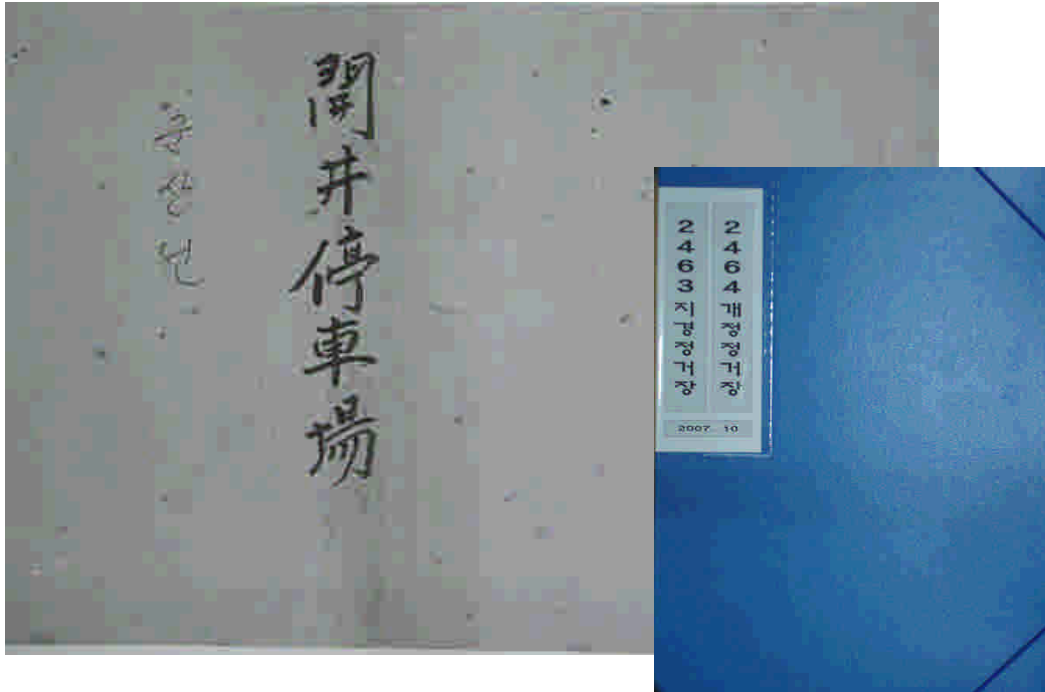 開井停車場
군산선
2464 개정정거장
2463 지경정거장
2007. 10